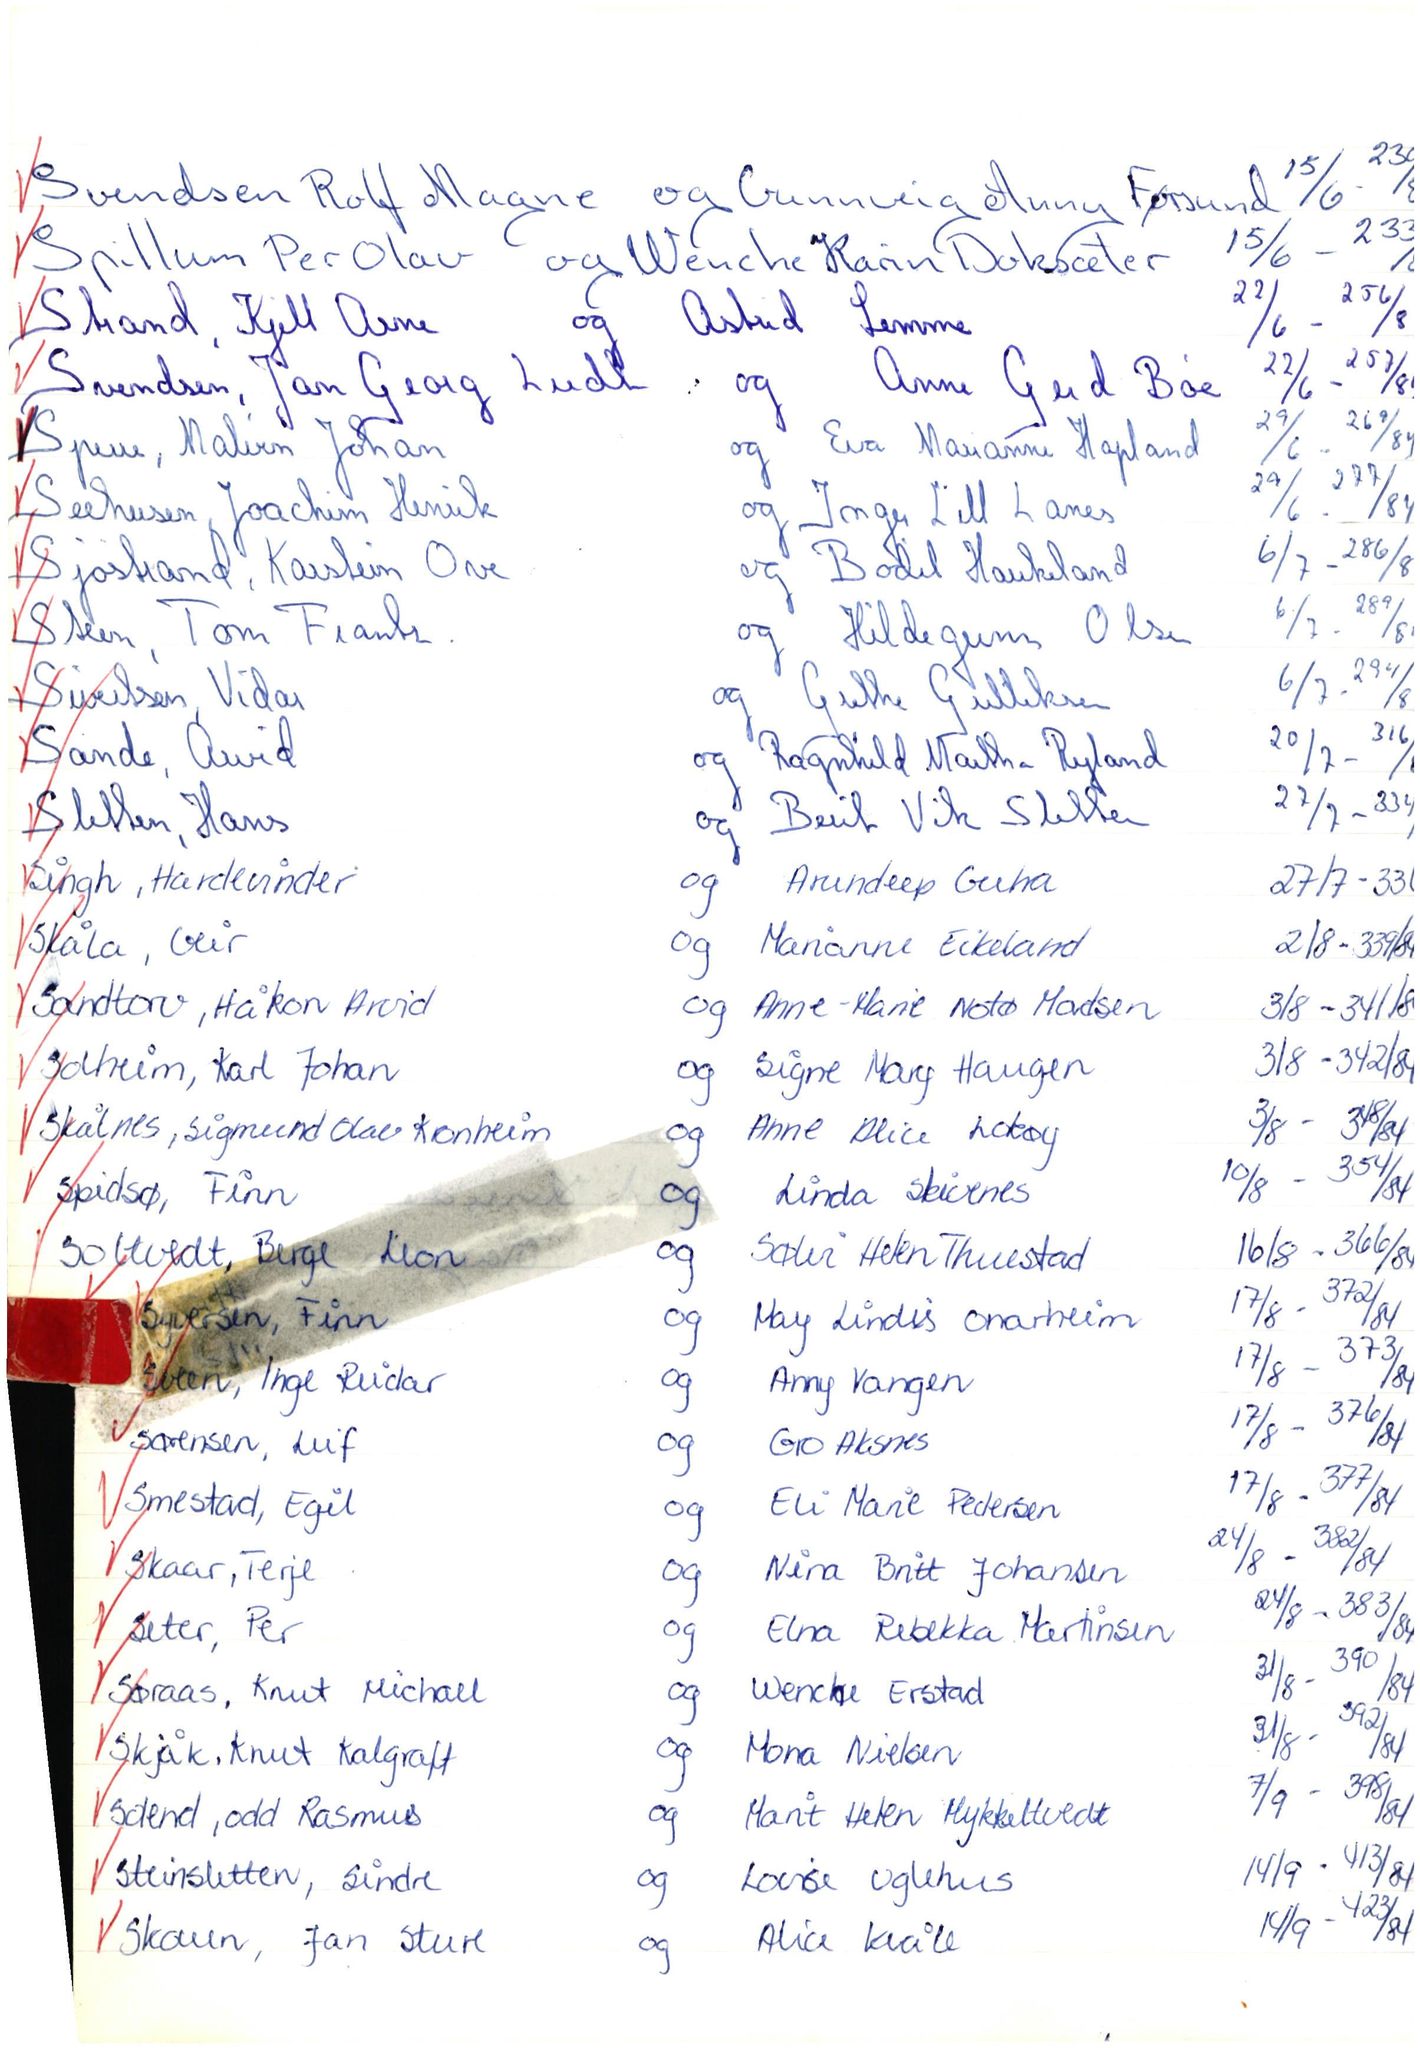 Svendsen Rolf Magne og Gunnveig Anny Førsund 15/6 - 230/8
Spillum Per Olav og Wenche Karin Doksæter 15/6 - 233/8
Strand, Kjell Arne og Astrid Lemme 22/6 - 256/8
Svendsen, Jan Georg og Anne Gerd Bøe 22/6 - 257/8
Johan og Eva Marianne Hapland 29/6 - 269/84
Seehusen, Joachim Henrik og Inger Lill Lanes 29/6 - 277/84
Sjöstrand, Karstein Ove og Bodil Haukeland 6/7 - 286/8
Steen, Tom Frantz og Hildegunn Olsen 6/7 - 289/8
Sivertsen, Vidar og Grethe Gulliksen 6/7 - 294/8
Sande, Arvid og Ragnhild Martha Ryland 20/7 - 316/
Sletten, Hans og Berit Vik Sletten 27/7 - 334/
Singh, Hardevinder og Arundeep Guha 27/7 - 33
Skåla, Geir og Marianne Eikeland 2/8 - 339/84
Sandtorv, Håkon Arvid og Anne-Marie Notø Madsen 3/8 - 341/8
Solheim, Karl Johan og Signe Mary Haugen 3/8 - 342/84
Skålnes, Sigmund Olav Kronheim og Anne Alice Lokøy 3/8 - 348/84
Spidsø, Finn og Linda Skivenes 10/8 - 354/84
Soltvedt, Børge Leon og Sølvi Helen Thuestad 16/8 - 366/84
Syversen, Finn og May Lindis Onarheim 17/8 - 372/84
Sveen, Inge Reidar og Anny Vangen 17/8 - 373/84
Sørensen, Leif og Gro Aksnes 17/8 - 376/84
Smestad, Egil og Eli Marie Pedersen 17/8 - 377/84
Skaar, Terje og Nina Britt Johansen 24/8 - 382/84
Seter, Per og Elna Rebekka Martinsen 24/8 - 383/84
Søraas, Knut Michael og Wenche Erstad 31/8 - 390/84
Skjåk, Knut Kalgraff og Mona Nielsen 31/8 - 392/84
Solend, Odd Rasmus og Marit Helen Mykkeltvedt 7/9 - 398/84
Steinsletten, Sindre og Louise Uglehus 14/9 - 413/84
Skauen, Jan Sture og Alice Kvåle 14/9 - 423/84